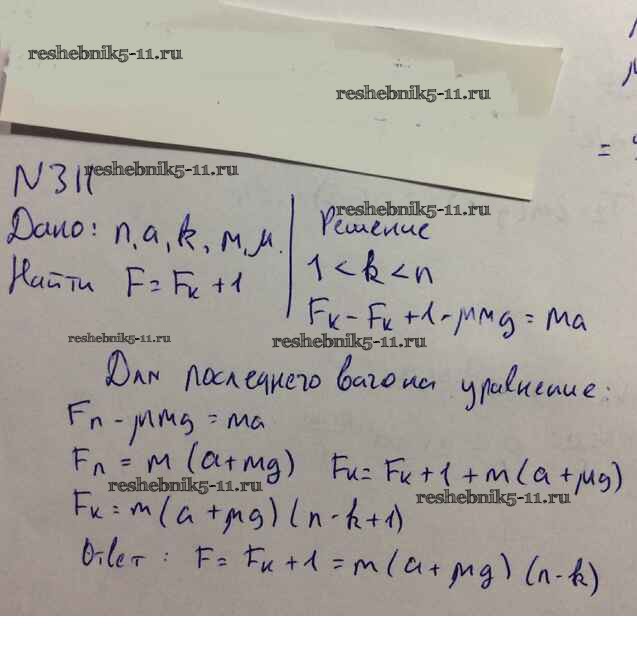 reshebnik5-11.ru
reshebnik5-11.ru
=
N 311 reshebnik5-11.ru
Дано: n, a, k, m, μ. | reshebnik5-11.ru
Решение
Найти F = Fк + 1
1 < k < n
Fк - Fк + 1 - μmg = ma
reshebnik5-11.ru reshebnik5-11.ru
Для последнего вагона уравнение:
Fn - μmg = ma
Fn = m (a + mg) Fк = Fк + 1 + m(a + μg)
reshebnik5-11.ru reshebnik5-11.ru
Fк = m(a + μg) (n - k + 1)
Ответ: F = Fк + 1 = m(a + μg) (n - k)